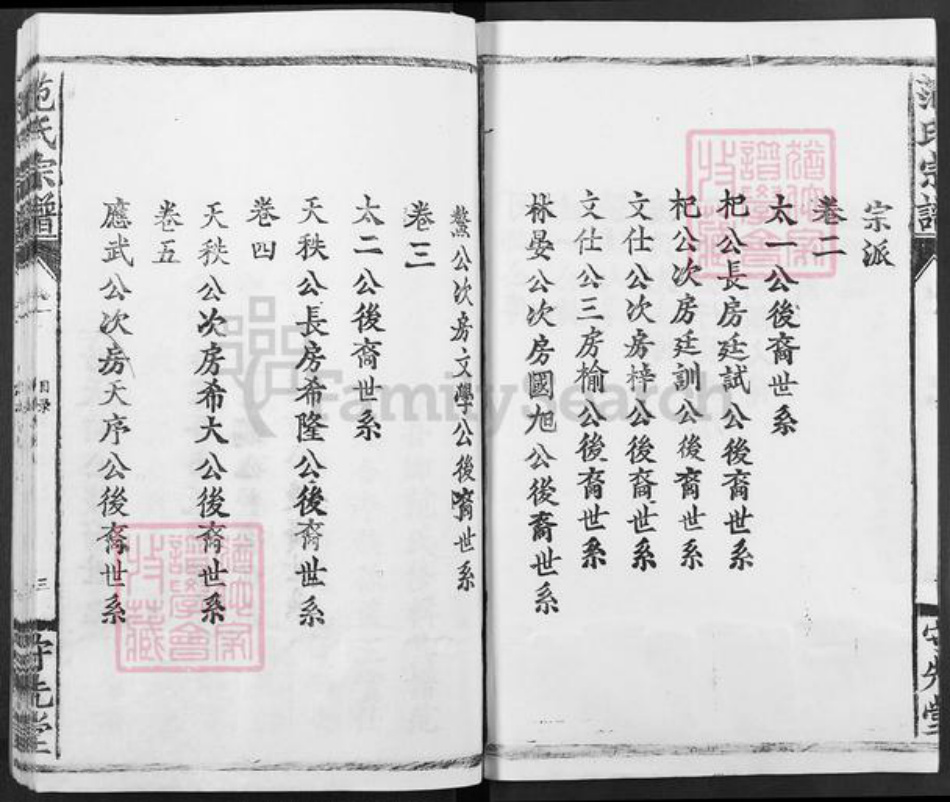 宗派
卷二
太一公後裔世系
杞公長房廷試公後裔世系
杞公次房廷訓公後裔世系
文仕公次房梓公後裔世系
文仕公三房榆公後裔世系
林晏公次房國旭公後裔世系
鰲公次房文學公後裔世系
卷三
太二公後裔世系
天秩公長房希隆公後裔世系
卷四
天秩公次房希大公後裔世系
卷五
應武公次房天序公後裔世系
范氏宗譜
目錄
三
守先堂
范氏宗譜
守先堂
猶他家譜學會收藏
猶他家譜學會收藏
FamilySearch